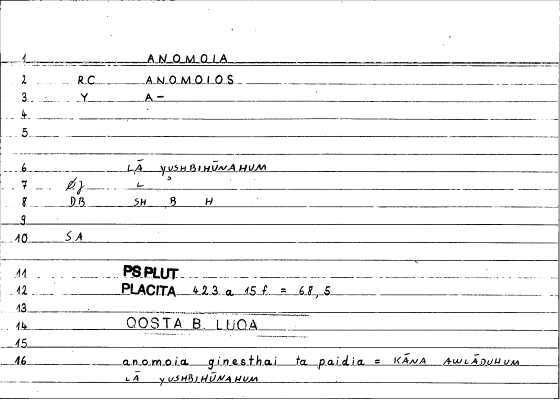 1 ANOMOIA
2 RC ANOMOIOS
3 Y A-
4
5
6 LĀ YUSHBIHŪNAHUM
7 L
8 DB SH B H
9
10 SA
11 PS PLUT
12 PLACITA 423 a 15 f. = 68,5
13
14 QOSTA B. LUQA
15
16 anomoia ginesthai ta paidia = KĀNA AWLĀDUHUM
LĀ YUSHBIHŪNAHUM